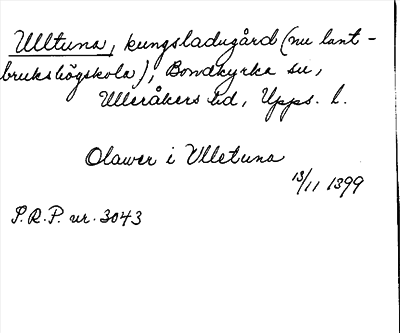 Ulltuna, kungsladugård (nu lant-
brukshögskola), Bondkyrka sn,
Ulleråkers hd, Upps. l.
Olawer i Vlletuna
13/11 1399
P.R.P. nr. 3043